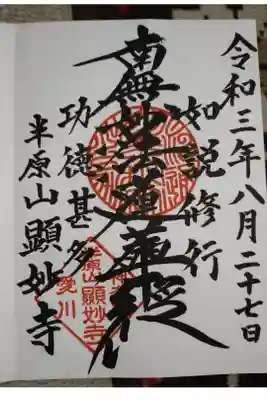 令和三年八月二十七日
如説修行
南無妙法蓮華経
功徳甚多
半原山顕妙寺
顕妙寺
愛川